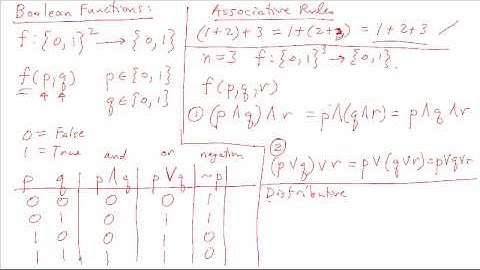 Boolean Functions:
f: {0,1}² → {0,1}
f(p,q) p ∈ {0,1}
q ∈ {0,1}
0 = False
1 = True and or negation
p q p∧q p∨q ~p
0 0 0 0 1
0 1 0 1 1
1 0 0 1 0
1 1 1 1 0
Associative Rules
(1+2)+3 = 1+(2+3) = 1+2+3
n=3 f: {0,1}³ → {0,1}.
f(p,q,r)
① (p∧q)∧r = p∧(q∧r) = p∧q∧r
②
(p∨q)∨r = p∨(q∨r) = p∨q∨r
Distributive